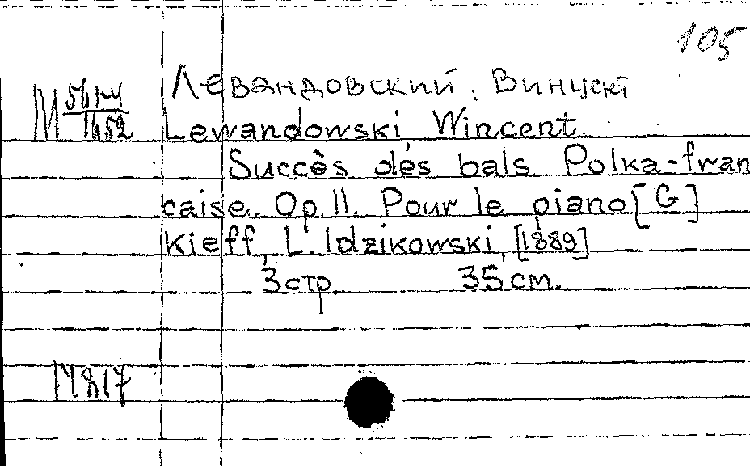 105
Левандовский, Винцент
Lewandowski Wincent
Succès des bals Polka-fran
caise. Op. 11. Pour le piano [G]
Kieff, L. Idzikowski, [1889]
3 стр. 35 см.